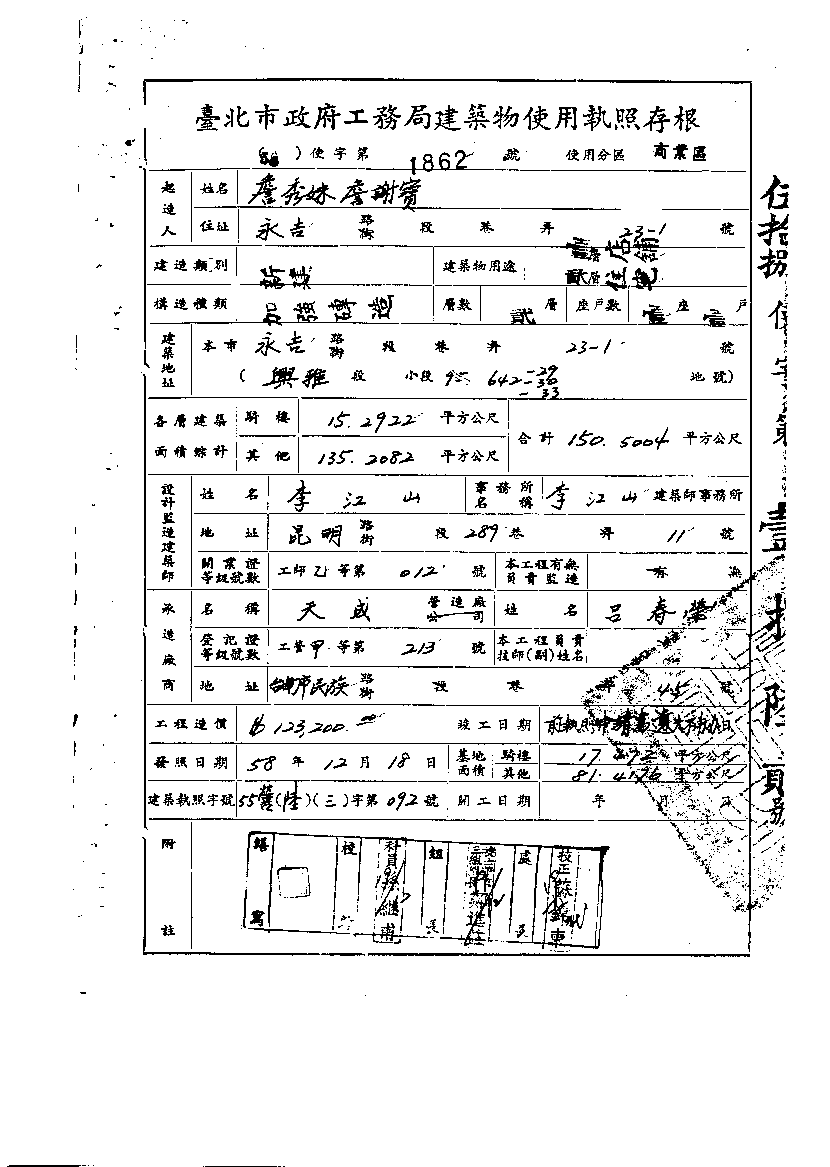 臺北市政府工務局建築物使用執照存根
( )使字第 1862 號 使用分區 商業區
起造人 姓名 詹秀妹 詹謝寶
住址 永吉 路街 段 巷 弄 23-1 號
建造類別 新建 建築物用途 壹層店舖 貳層住宅
構造種類 加強磚造 層數 貳 層 座戶數 壹 座 壹 戶
建築地址 本市 永吉 路街 段 巷 弄 23-1 號
(興雅 段 小段 642-29 -30 -33 地號)
各層建築面積綜計 騎樓 15.2922 平方公尺 合計 150.5004 平方公尺
其他 135.2082 平方公尺
設計監造建築師 姓名 李江山 事務所名稱 李江山 建築師事務所
地址 昆明 路街 段 289 巷 弄 11 號
開業證等級號數 工師乙等第 012 號 本工程有無負責監造 有 無
承造廠商 名稱 天成 營造廠公司 姓名 呂春榮
登記證等級號數 工營甲等第 213 號 本工程負責技師(副)姓名
地址 台南市民族 路街 段 巷 弄 45 號
工程造價 123,200.00 竣工日期
發照日期 58 年 12 月 18 日 基地面積 騎樓 17. 平方公尺
其他 81.4126 平方公尺
建築執照字號 55 (陸)(三)字第 092 號 開工日期 年 月 日
附註
繕寫 校 科員 組長 處長 校正
伍拾捌使字第
壹 拾陸頁